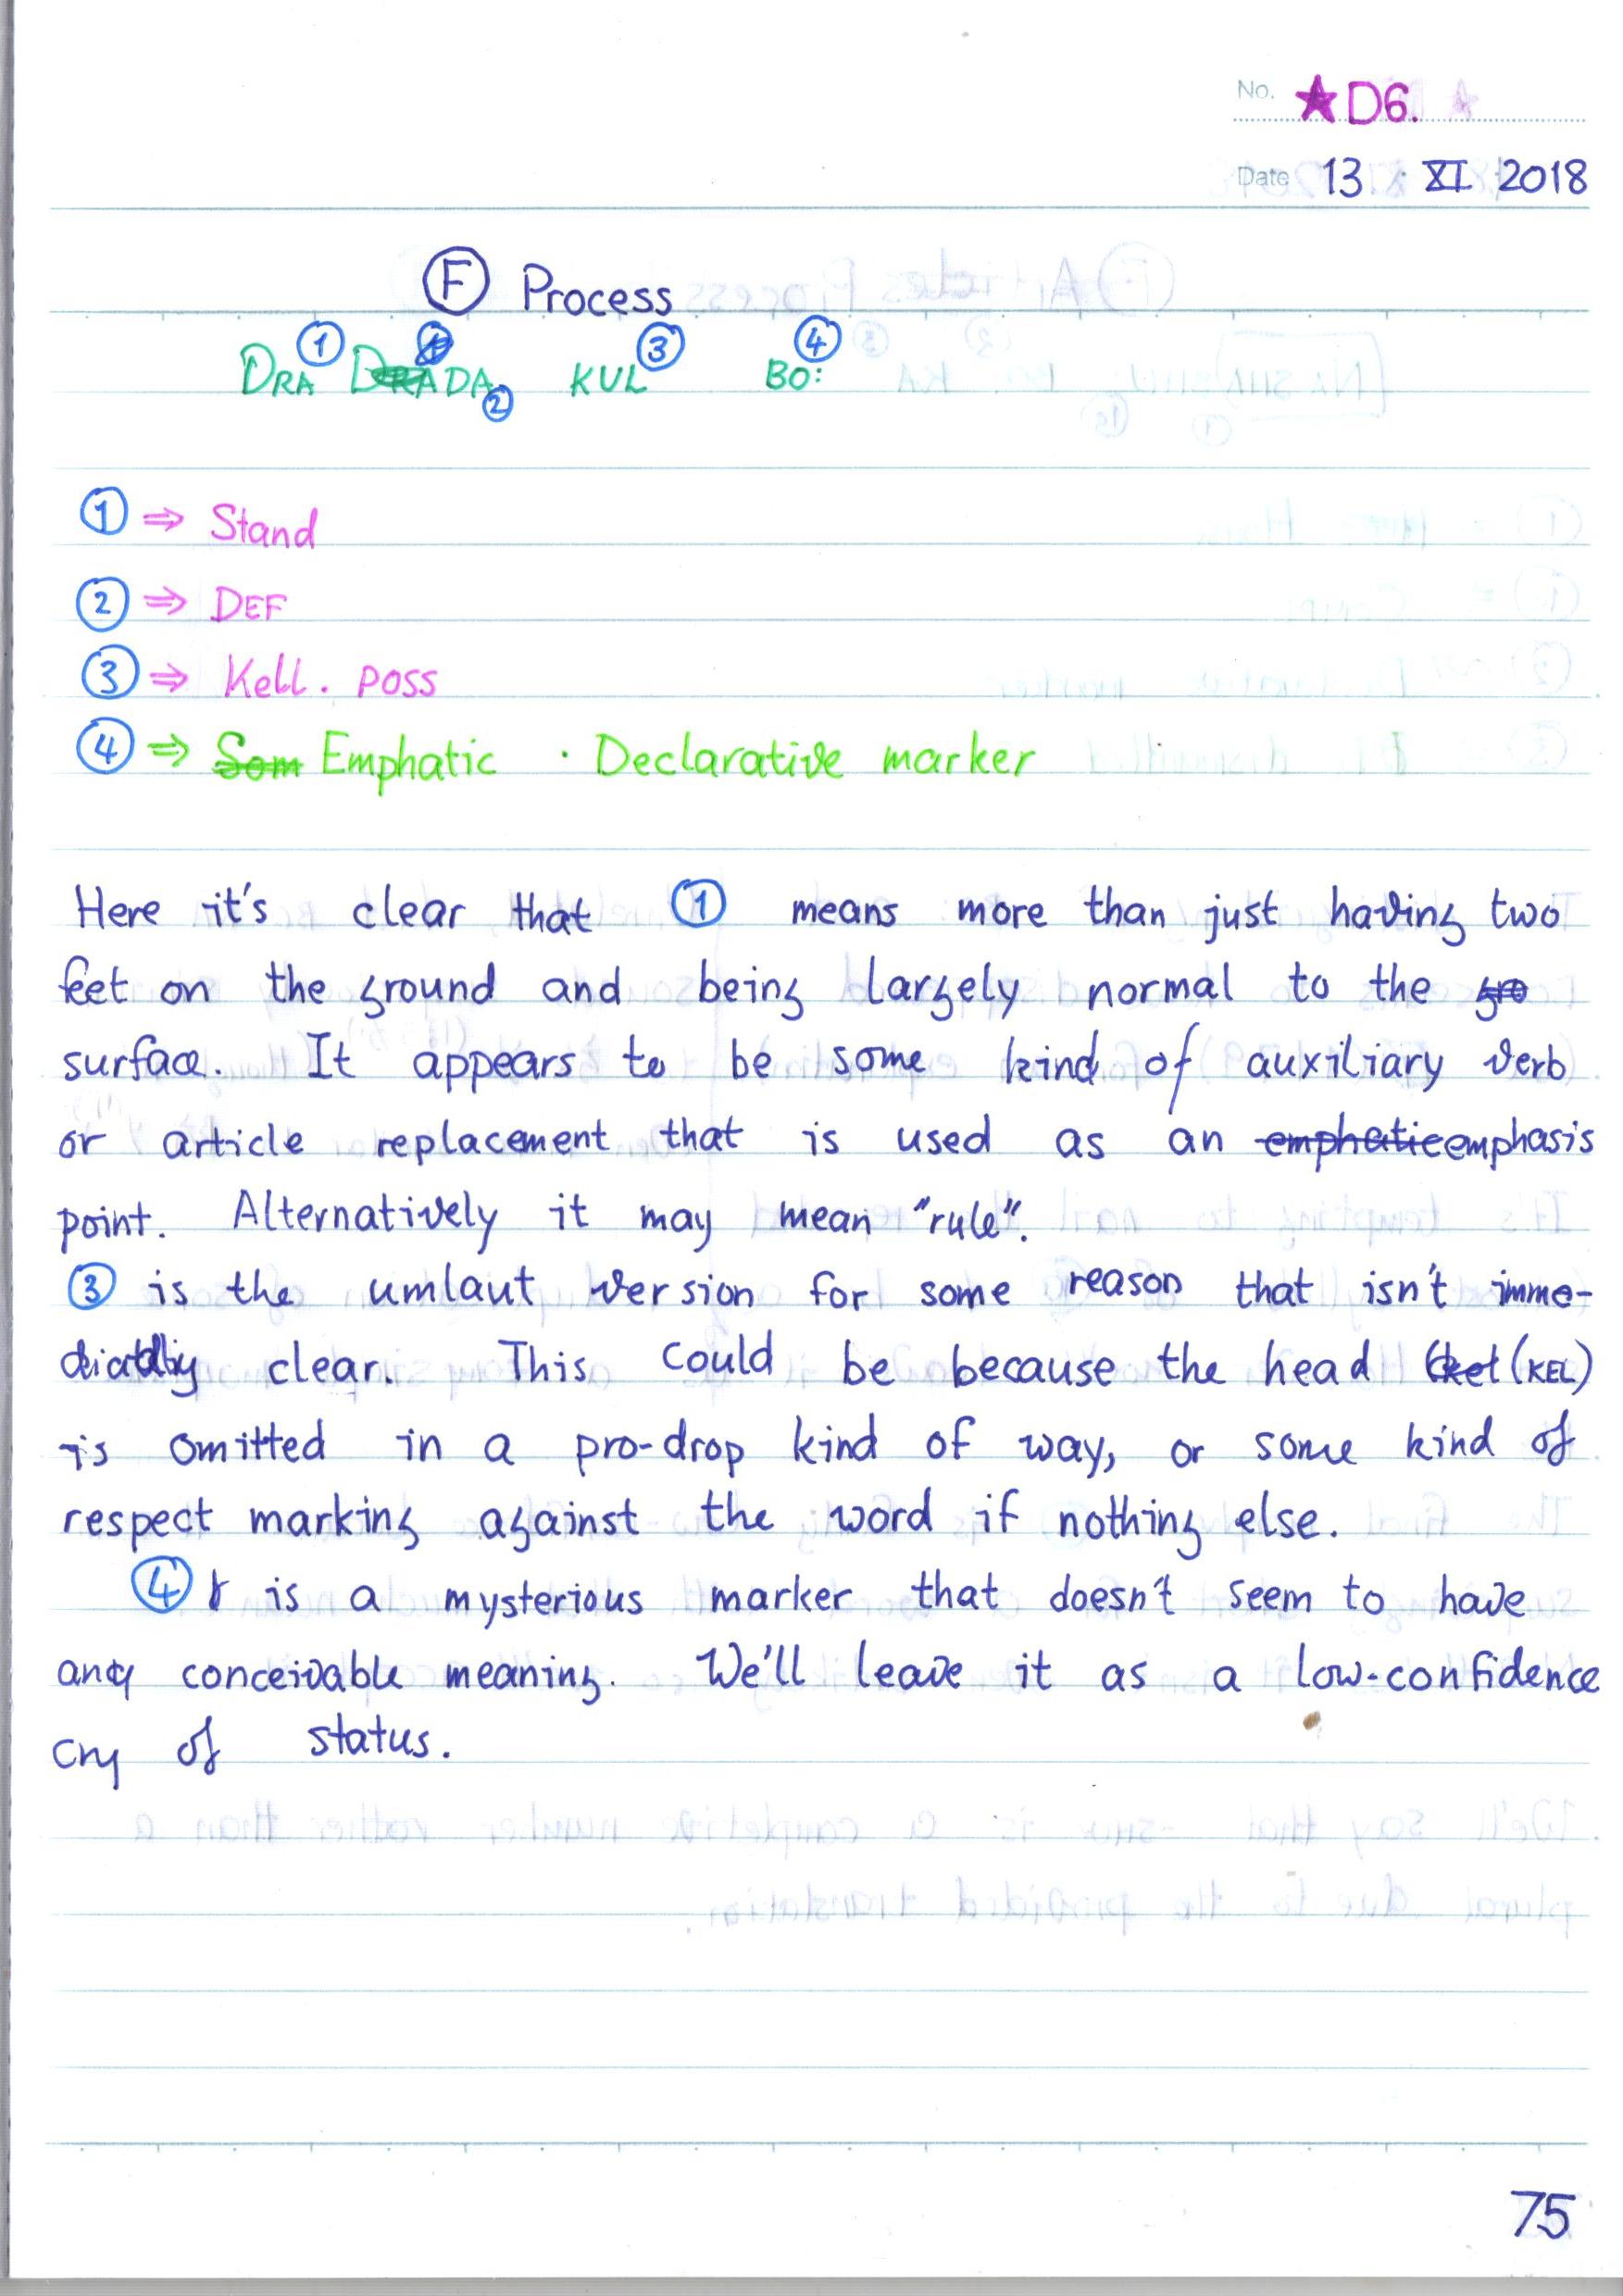 No. ★D6.
Date 13 XI 2018
Ⓕ Process
DRA① DADA② KUL③ BO:④
① ⇒ Stand
② ⇒ DEF
③ ⇒ Kell. POSS
④ ⇒ Som Emphatic · Declarative marker
Here it's clear that ① means more than just having two
feet on the ground and being largely normal to the gro
surface. It appears to be some kind of auxiliary verb
or article replacement that is used as an emphatic emphasis
point. Alternatively it may mean "rule".
③ is the umlaut version for some reason that isn't imme-
diatly clear. This could be because the head (kel (KEL)
is omitted in a pro-drop kind of way, or some kind of
respect marking against the word if nothing else.
④ is a mysterious marker that doesn't seem to have
any conceivable meaning. We'll leave it as a low-confidence
cry of status.
75